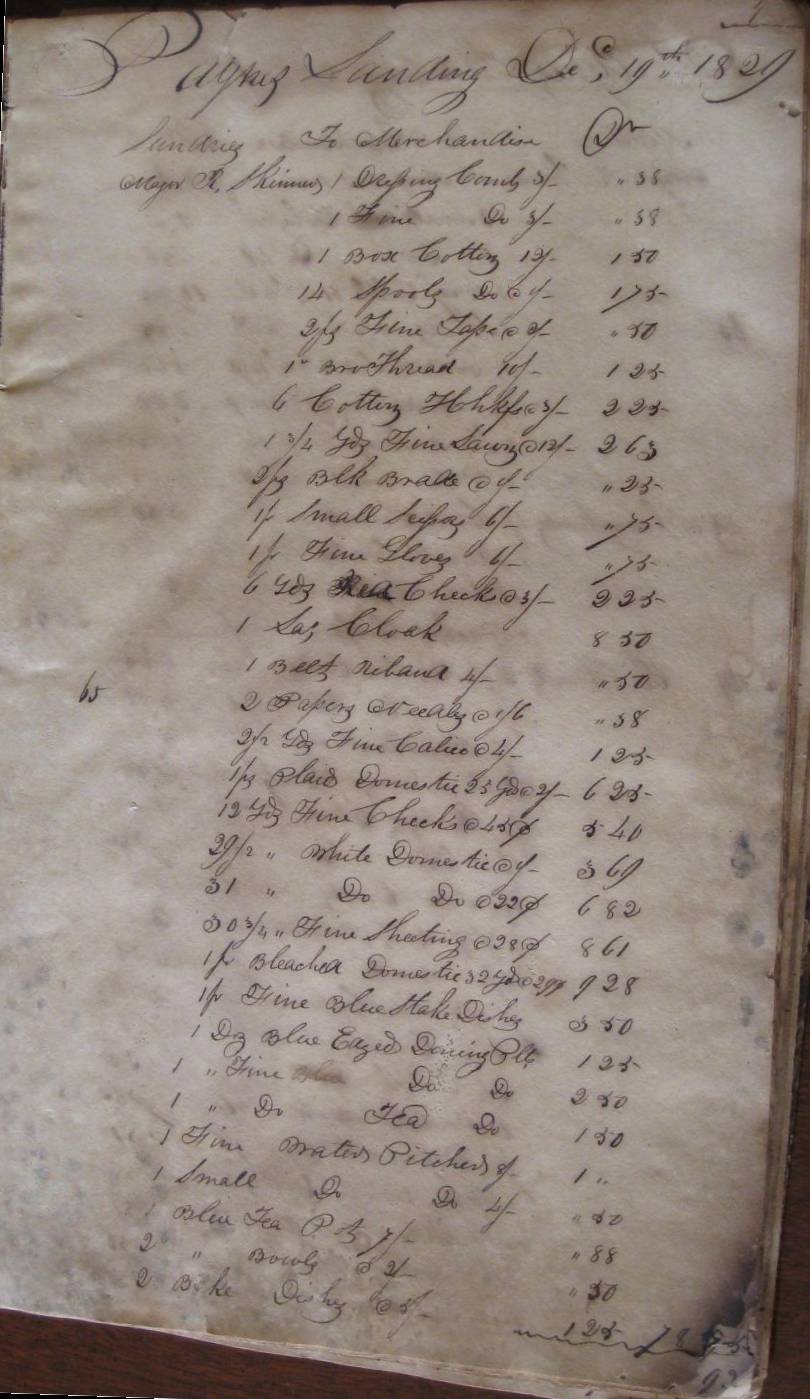 Paynes Landing Dec, 19th 1829
Sundries To Merchandise Dr
Major R, Skinner 1 Dressing Comb 3/- " 38
1 Fine Do 3/- " 38
1 Box Cotton 12/- 1 50
14 Spools Do @ 1/- 1 75
2ps Fine Tape @ 2/- " 50
1" Bro Thread 10/- 1 25
6 Cotton Hhkfs @ 3/- 2 25
1 3/4 Yds Fine Lawn @ 12/- 2 63
2ps Blk Brade @ 1/- " 25
1pr Small Scissors 6/- " 75
1pr Fine Gloves 6/- " 75
6 Yds Checks @ 3/- 2 25
1 Cloak 8 50
1 Belt Riband 4/- " 50
65
2 Papers Needles @ 1/6 " 38
2 1/2 Yds Fine Calico @ 4/- 1 25
1ps Plaid Domestic 25 Yds @ 2/- 6 25
12 Yds Fine Checks @ 45¢ 5 40
29 1/2 " White Domestic @ 1/- 3 69
31 " Do Do @ 22¢ 6 82
30 3/4 " Fine Sheeting @ 28¢ 8 61
1ps Bleached Domestic 32 Yds @ 29¢ 9 28
1pr Fine Blue Stake Dishes 3 50
1 Dz Blue Edged Dining Plts 1 25
1 " Fine Blue Do Do 2 50
1 " Do Tea Do 1 50
1 Fine Water Pitcher 8/- 1 "
1 Small Do Do 4/- " 50
1 Blue Tea Pot 7/- " 88
2 " Bowls @ 2/- " 50
2 Bake Dishes @ 5/- 1 25 78